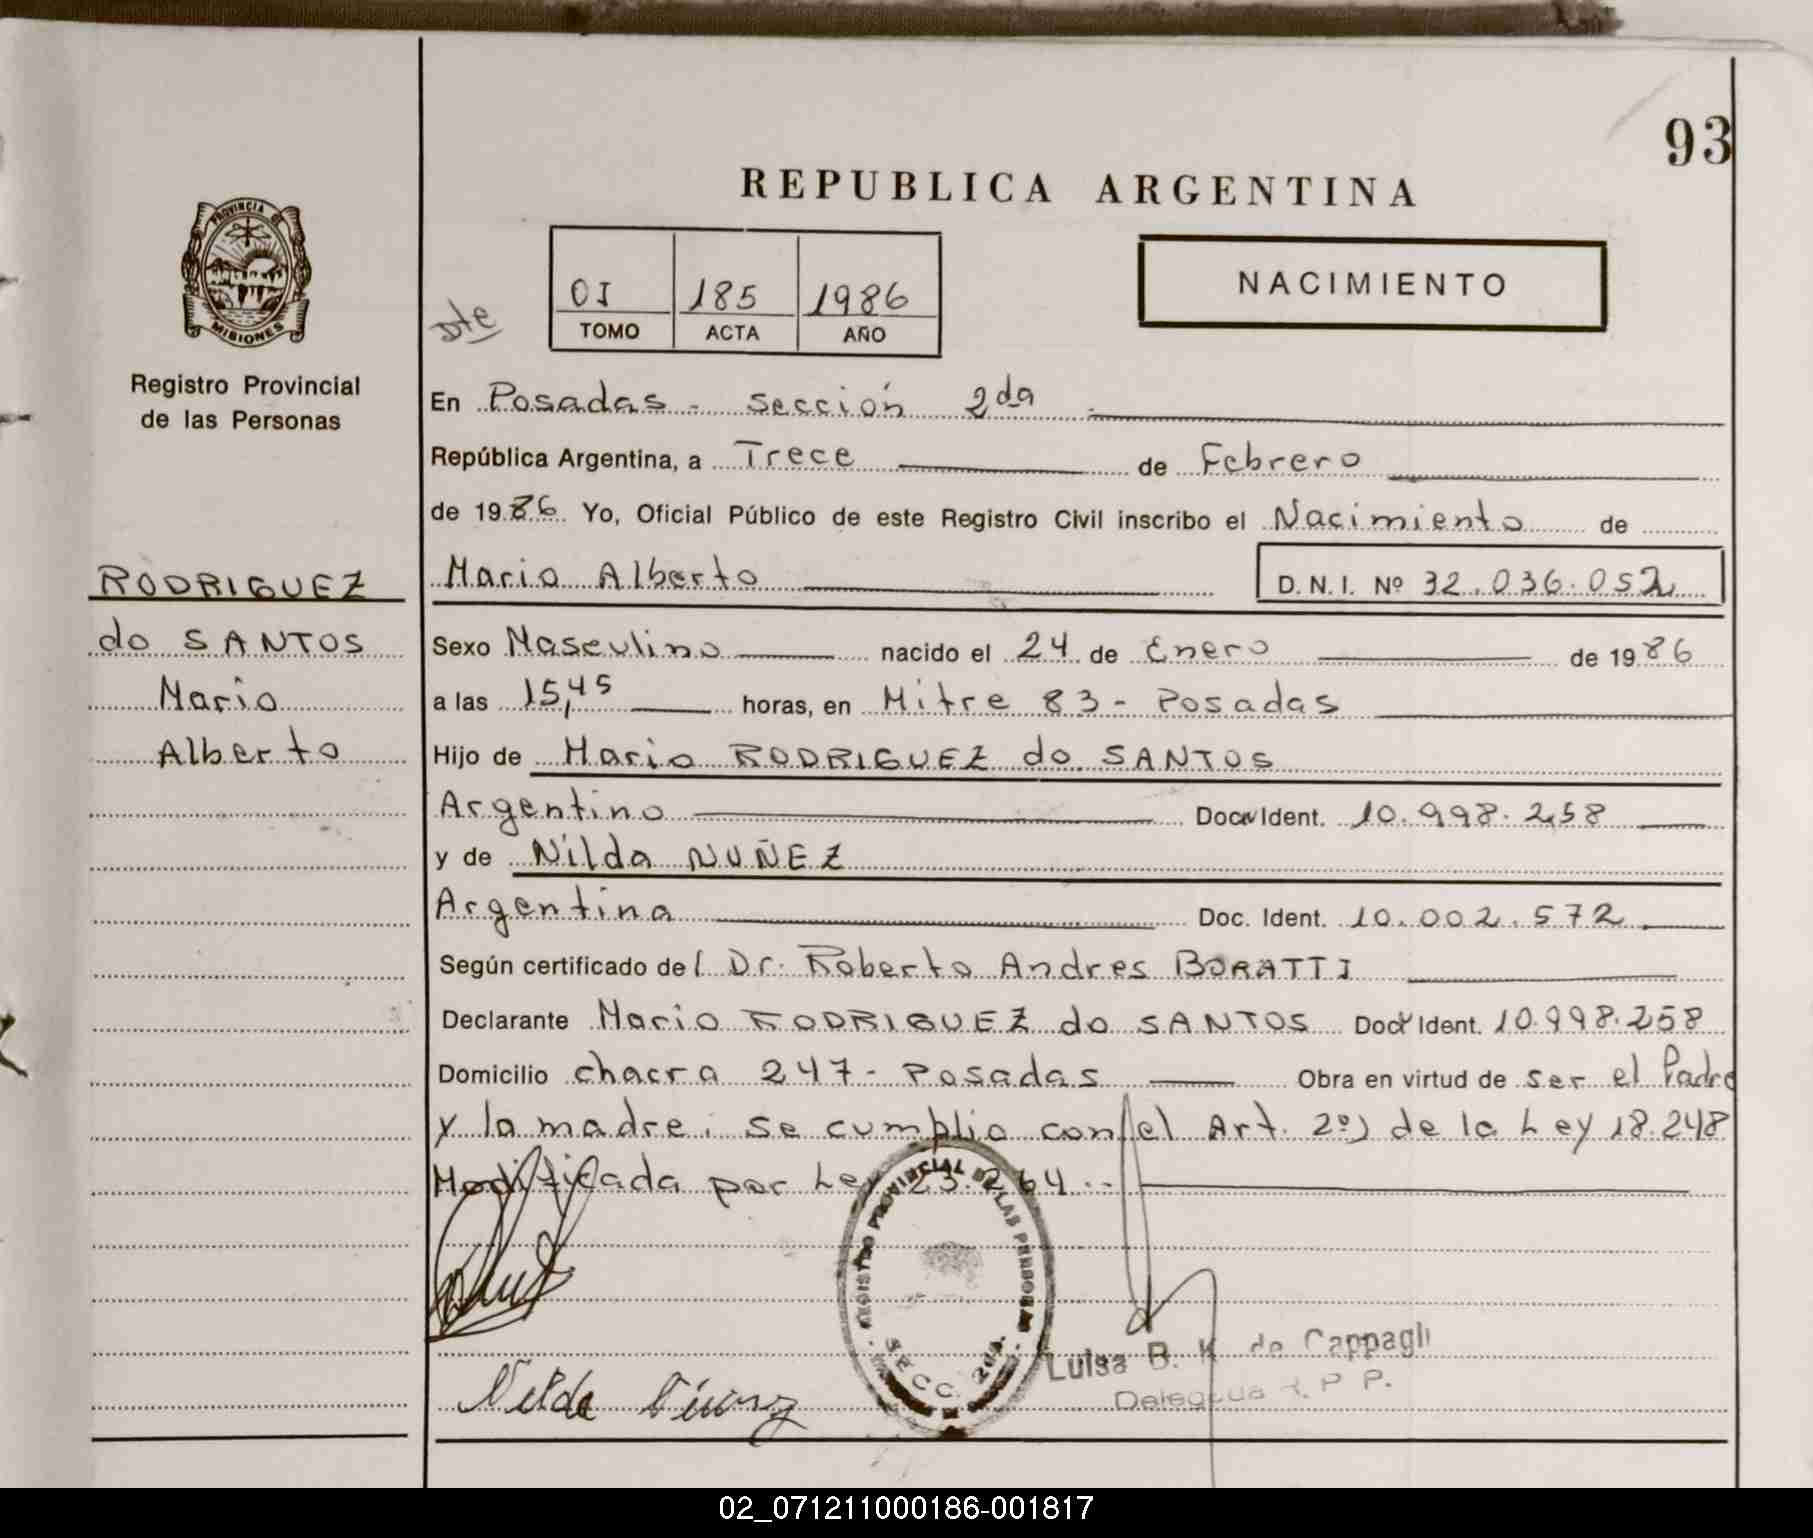 93
REPUBLICA ARGENTINA
PROVINCIA DE
MISIONES
Registro Provincial
de las Personas
Dte
01 185 1986
TOMO ACTA AÑO
NACIMIENTO
En Posadas - Sección 2da
República Argentina, a Trece de Febrero
de 1986 Yo, Oficial Público de este Registro Civil inscribo el Nacimiento de
Mario Alberto D.N.I. Nº 32.036.052
RODRIGUEZ
do SANTOS
Mario
Alberto
Sexo Masculino nacido el 24 de Enero de 1986
a las 15,45 horas, en Mitre 83 - Posadas
Hijo de Mario RODRIGUEZ do SANTOS
Argentino Doc. Ident. 10.998.258
y de Nilda NUÑEZ
Argentina Doc. Ident. 10.002.572
Según certificado del Dr. Roberto Andres BORATTI
Declarante Mario RODRIGUEZ do SANTOS Doc. Ident. 10.998.258
Domicilio chacra 247 - Posadas Obra en virtud de ser el Padre
y la madre. se cumplio con el Art. 2º) de la Ley 18.248
Modificada por Ley 23.264.-
REGISTRO PROVINCIAL DE LAS PERSONAS
SECC. 2da.
Luisa B. K. de Cappagli
Delegada R. P. P.
Nilda Núñez
02_071211000186-001817